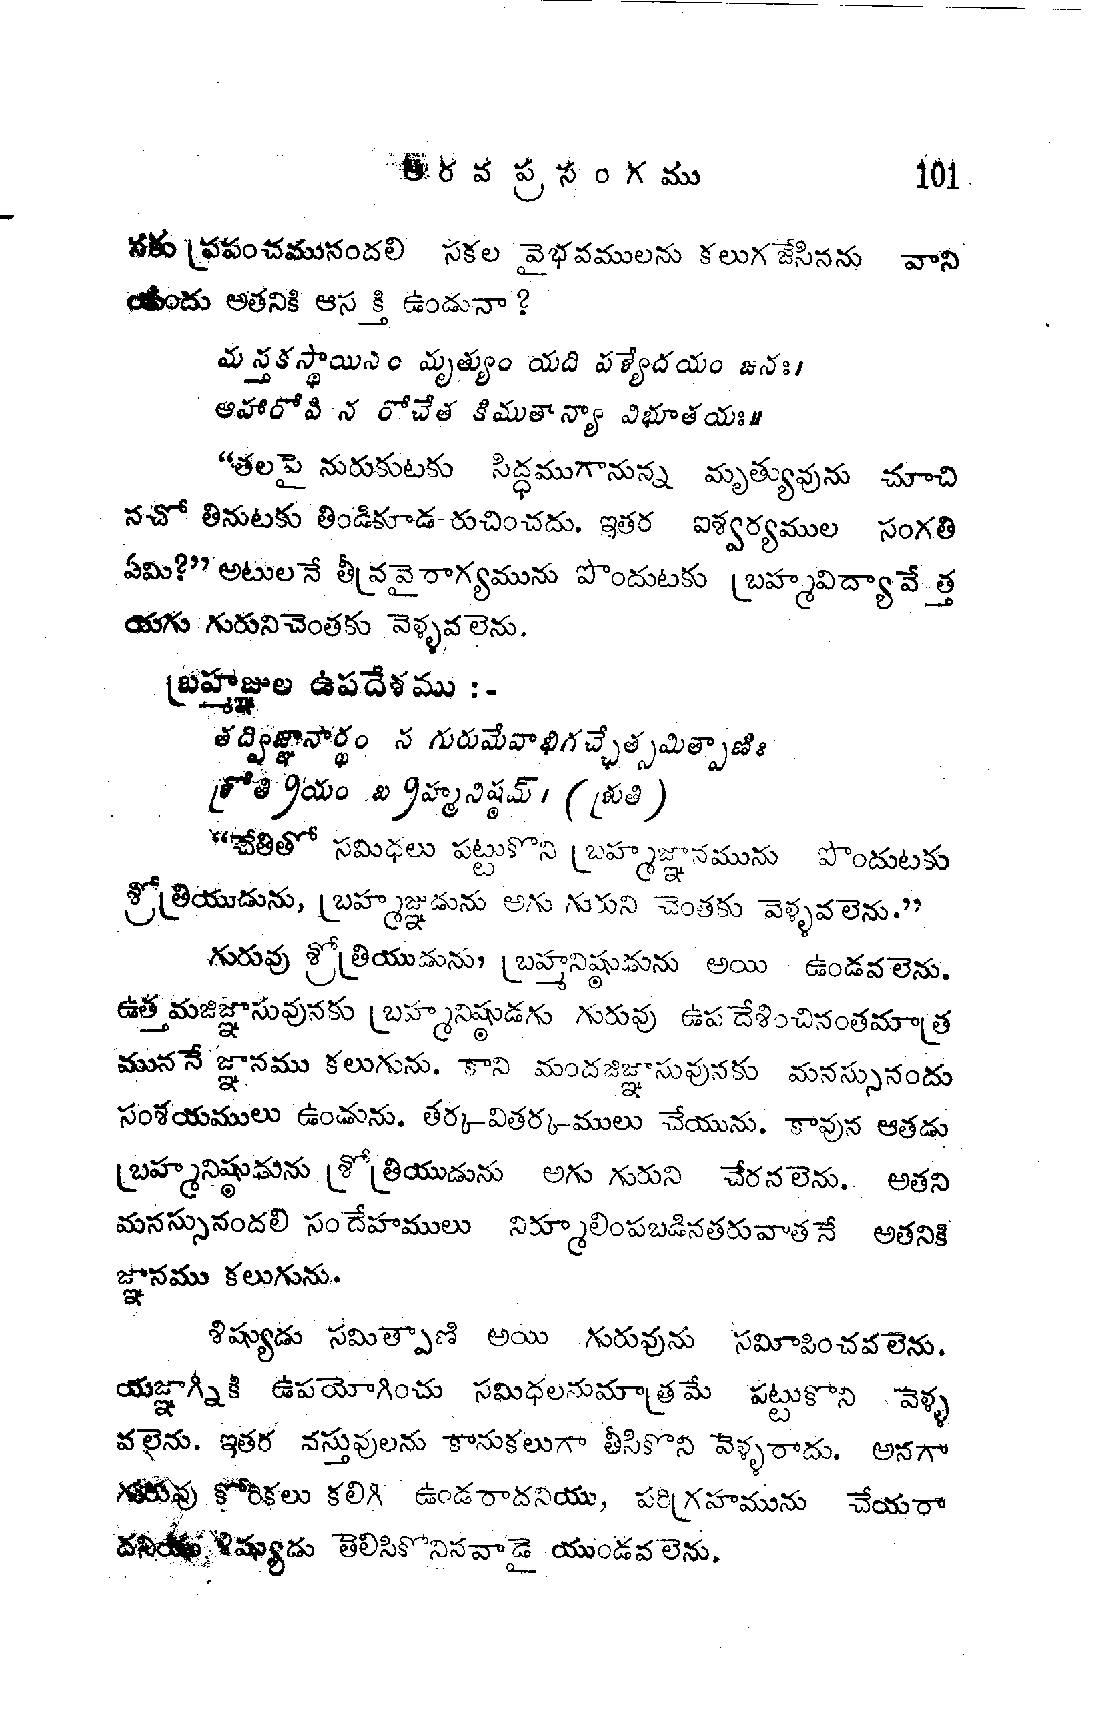 ఆరవ ప్రసంగము 101
నకు ప్రపంచమునందలి సకల వైభవములను కలుగజేసినను వాని
యందు అతనికి ఆసక్తి ఉండునా?
మస్తకస్థాయినం మృత్యుం యది పశ్యేదయం జనః।
ఆహారోపి న రోచేత కిముతాన్యా విభూతయః॥
“తలపై నురుకుటకు సిద్ధముగానున్న మృత్యువును చూచి
నచో తినుటకు తిండికూడ రుచించదు. ఇతర ఐశ్వర్యముల సంగతి
ఏమి?” అటులనే తీవ్రవైరాగ్యమును పొందుటకు బ్రహ్మవిద్యావేత్త
యగు గురునిచెంతకు వెళ్ళవలెను.
బ్రహ్మజ్ఞుల ఉపదేశము :-
తద్విజ్ఞానార్థం స గురుమేవాభిగచ్ఛేత్సమిత్పాణిః
శ్రోత్రియం బ్రహ్మనిష్ఠమ్। (శ్రుతి)
“చేతితో సమిధలు పట్టుకొని బ్రహ్మజ్ఞానమును పొందుటకు
శ్రోత్రియుడును, బ్రహ్మజ్ఞుడును అగు గురుని చెంతకు వెళ్ళవలెను.”
గురువు శ్రోత్రియుడును, బ్రహ్మనిష్ఠుడును అయి ఉండవలెను.
ఉత్తమజిజ్ఞాసువునకు బ్రహ్మనిష్ఠుడగు గురువు ఉపదేశించినంతమాత్ర
ముననే జ్ఞానము కలుగును. కాని మందజిజ్ఞాసువునకు మనస్సునందు
సంశయములు ఉండును. తర్క-వితర్క-ములు చేయును. కావున ఆతడు
బ్రహ్మనిష్ఠుడును శ్రోత్రియుడును అగు గురుని చేరవలెను. అతని
మనస్సునందలి సందేహములు నిర్మూలింపబడినతరువాతనే అతనికి
జ్ఞానము కలుగును.
శిష్యుడు సమిత్పాణి అయి గురువును సమీపించవలెను.
యజ్ఞాగ్నికి ఉపయోగించు సమిధలనుమాత్రమే పట్టుకొని వెళ్ళ
వలెను. ఇతర వస్తువులను కానుకలుగా తీసికొని వెళ్ళరాదు. అనగా
గురువు కోరికలు కలిగి ఉండరాదనియు, పరిగ్రహమును చేయరా
దనియు, శిష్యుడు తెలిసికొనినవాడై యుండవలెను.